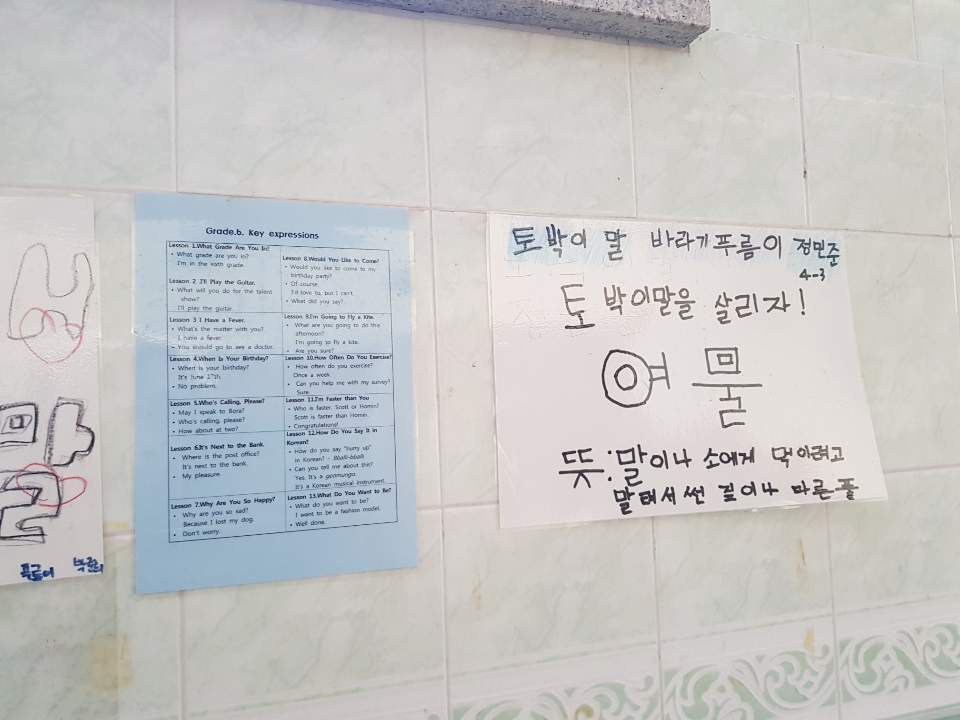 Grade.6. Key expressions
Lesson 1.What Grade Are You In?
• What grade are you in?
I'm in the sixth grade.
Lesson 2 I'll Play the Guitar.
• What will you do for the talent
show?
I'll play the guitar.
Lesson 3 I Have a Fever.
• What's the matter with you?
I have a fever.
• You should go to see a doctor.
Lesson 4.When Is Your Birthday?
• When is your birthday?
It's June 17th.
• No problem.
Lesson 5.Who's Calling, Please?
• May I speak to Bora?
• Who's calling, please?
• How about at two?
Lesson 6.It's Next to the Bank.
• Where is the post office?
It's next to the bank.
• My pleasure.
Lesson 7.Why Are You So Happy?
• Why are you so sad?
Because I lost my dog.
• Don't worry.
Lesson 8.Would You Like to Come?
• Would you like to come to my
birthday party?
• Of course.
I'd love to, but I can't.
• What did you say?
Lesson 9.I'm Going to Fly a Kite.
• What are you going to do this
afternoon?
I'm going to fly a kite.
• Are you sure?
Lesson 10.How Often Do You Exercise?
• How often do you exercise?
Once a week.
• Can you help me with my survey?
Sure.
Lesson 11.I'm Faster than You
• Who is faster, Scott or Homin?
Scott is faster than Homin.
• Congratulations!
Lesson 12.How Do You Say It in
Korean?
• How do you say "hurry up"
in Korean? - Bballi-bballi
• Can you tell me about this?
Yes. It's a geomungo.
It's a Korean musical instrument.
Lesson 13.What Do You Want to Be?
• What do you want to be?
I want to be a fashion model.
• Well done.
토박이 말 바라기 푸름이 정민준
4-3
토박이말을 살리자!
여물
뜻:말이나 소에게 먹이려고
말려서 썬 짚이나 마른풀